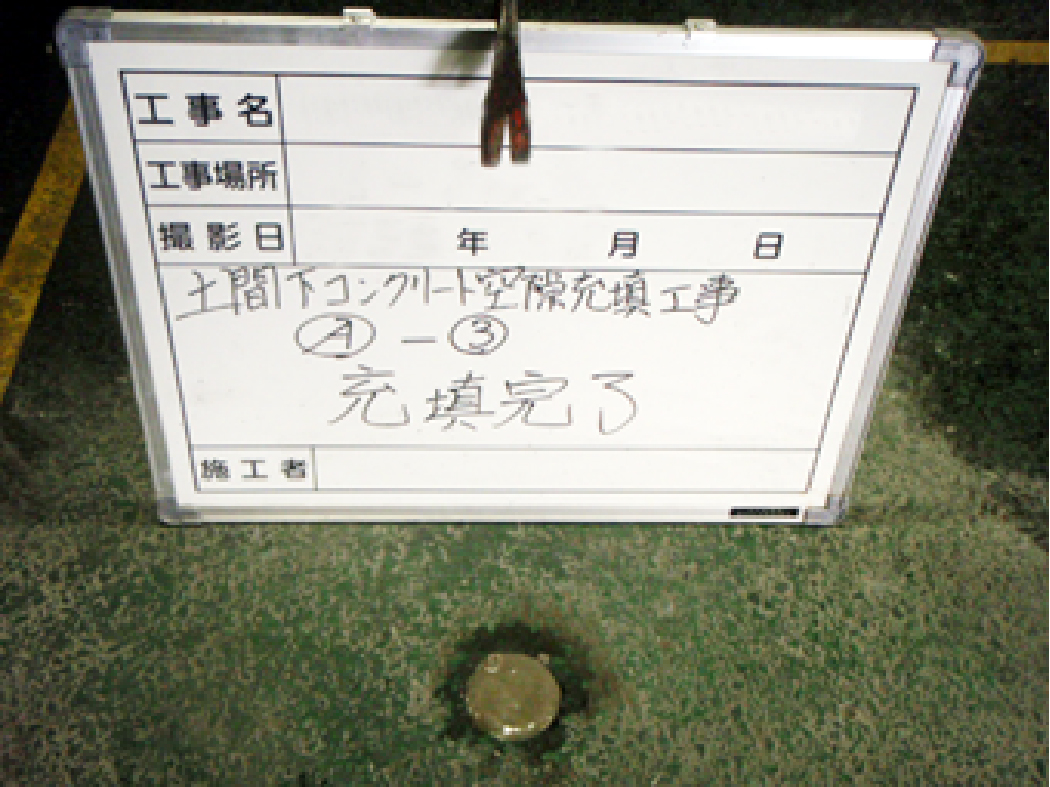 工事名
工事場所
撮影日 年 月 日
土間下コンクリート空隙充填工事
Ⓐ－③
充填完了
施工者